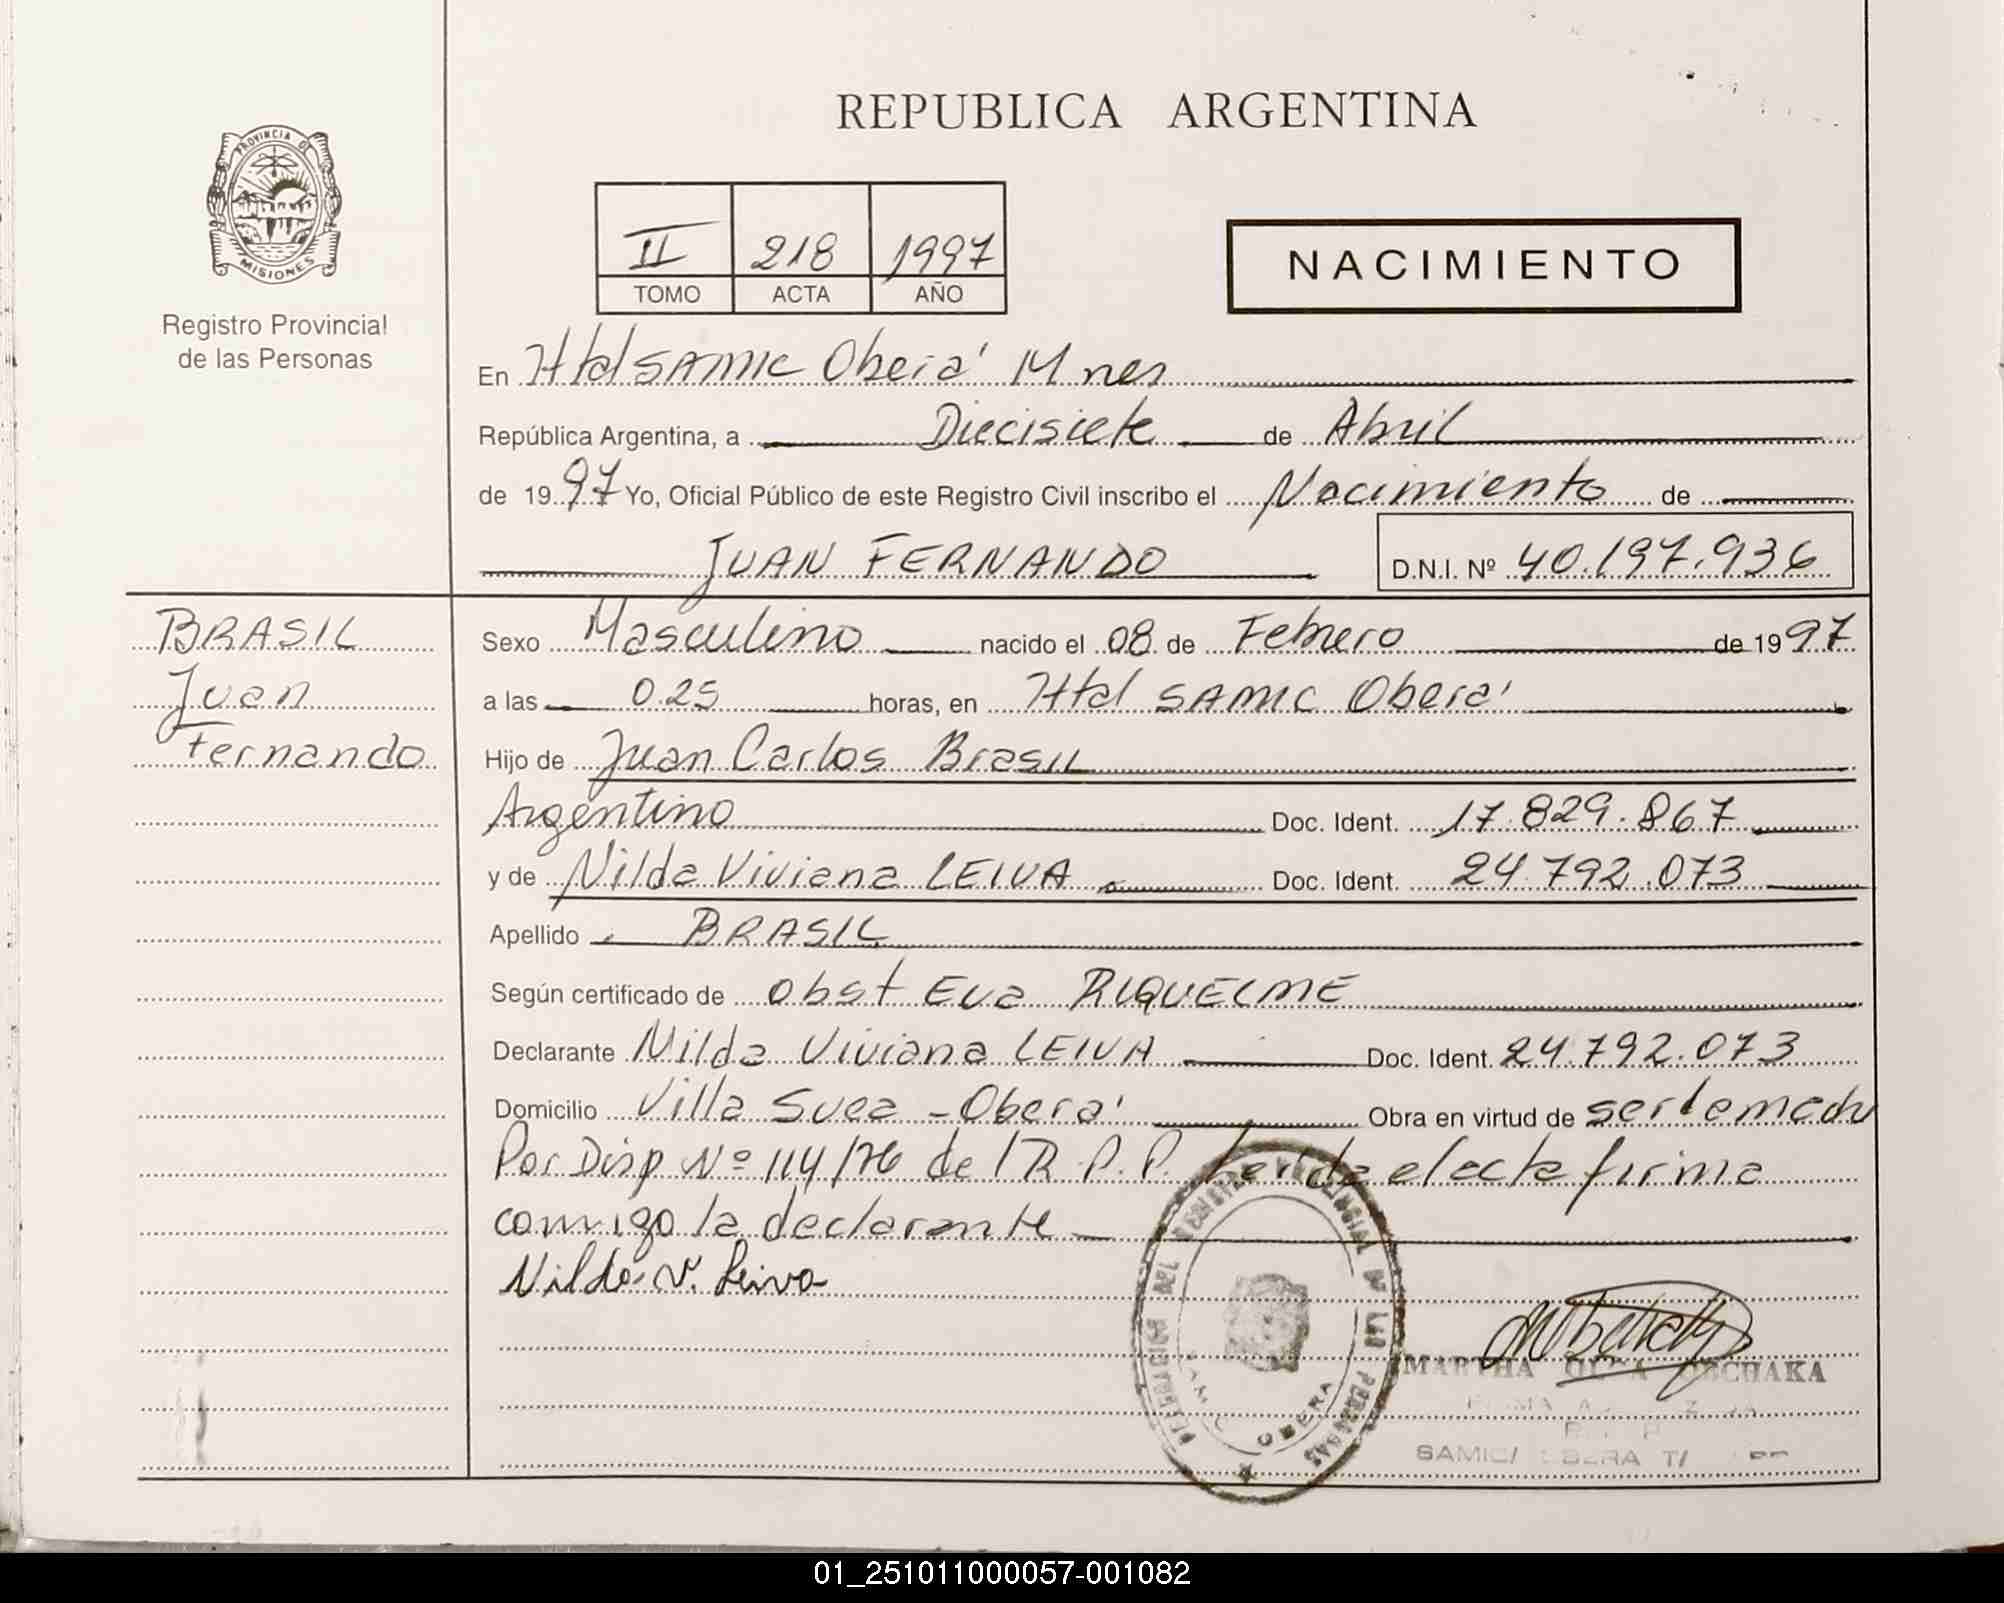 REPUBLICA ARGENTINA
PROVINCIA DE
MISIONES
Registro Provincial
de las Personas
II 218 1997
TOMO ACTA AÑO
NACIMIENTO
En Htal SAMIC Oberá Mnes
República Argentina, a Diecisiete de Abril
de 1997 Yo, Oficial Público de este Registro Civil inscribo el Nacimiento de
JUAN FERNANDO D.N.I. Nº 40.197.936
BRASIL
Juan
Fernando
Sexo Masculino nacido el 08 de Febrero de 1997
a las 0.25 horas, en Htal SAMIC Oberá
Hijo de Juan Carlos Brasil
Argentino Doc. Ident. 17.829.867
y de Nilda Viviana LEIVA Doc. Ident. 24.792.073
Apellido BRASIL
Según certificado de Obst Eva RIQUELME
Declarante Nilda Viviana LEIVA Doc. Ident. 24.792.073
Domicilio Villa Svea - Oberá Obra en virtud de ser la madre
Por Disp Nº 114/76 del R.P.P. Leída el acta firma
conmigo la declarante
Nilda V. Leiva
REGISTRO PROVINCIAL DE LAS PERSONAS
OBERA
MARTHA OBCHAKA
SAMIC/ OBERA
01_251011000057-001082